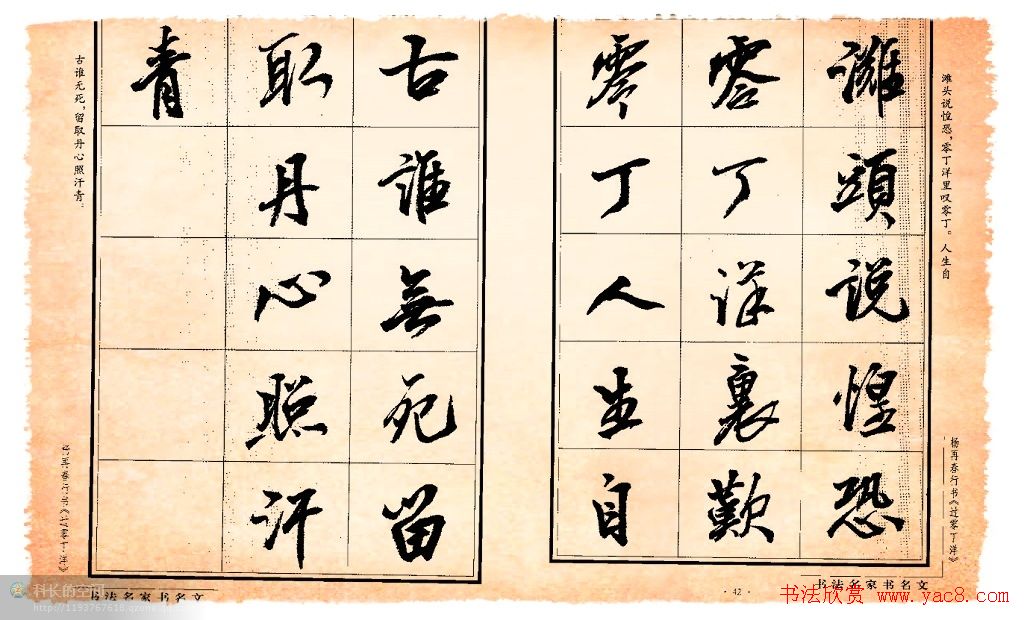 滩头说惶恐，零丁洋里叹零丁。人生自
灘頭説惶恐
零丁洋裏歎
零丁人生自
杨再春行书《过零丁洋》
书法名家书名文
· 42 ·
古誰無死留
取丹心照汗
青
古谁无死，留取丹心照汗青。
杨再春行书《过零丁洋》
书法名家书名文
科长的空间
http://1193767618.qzone.qq.com
书法欣赏 www.yac8.com